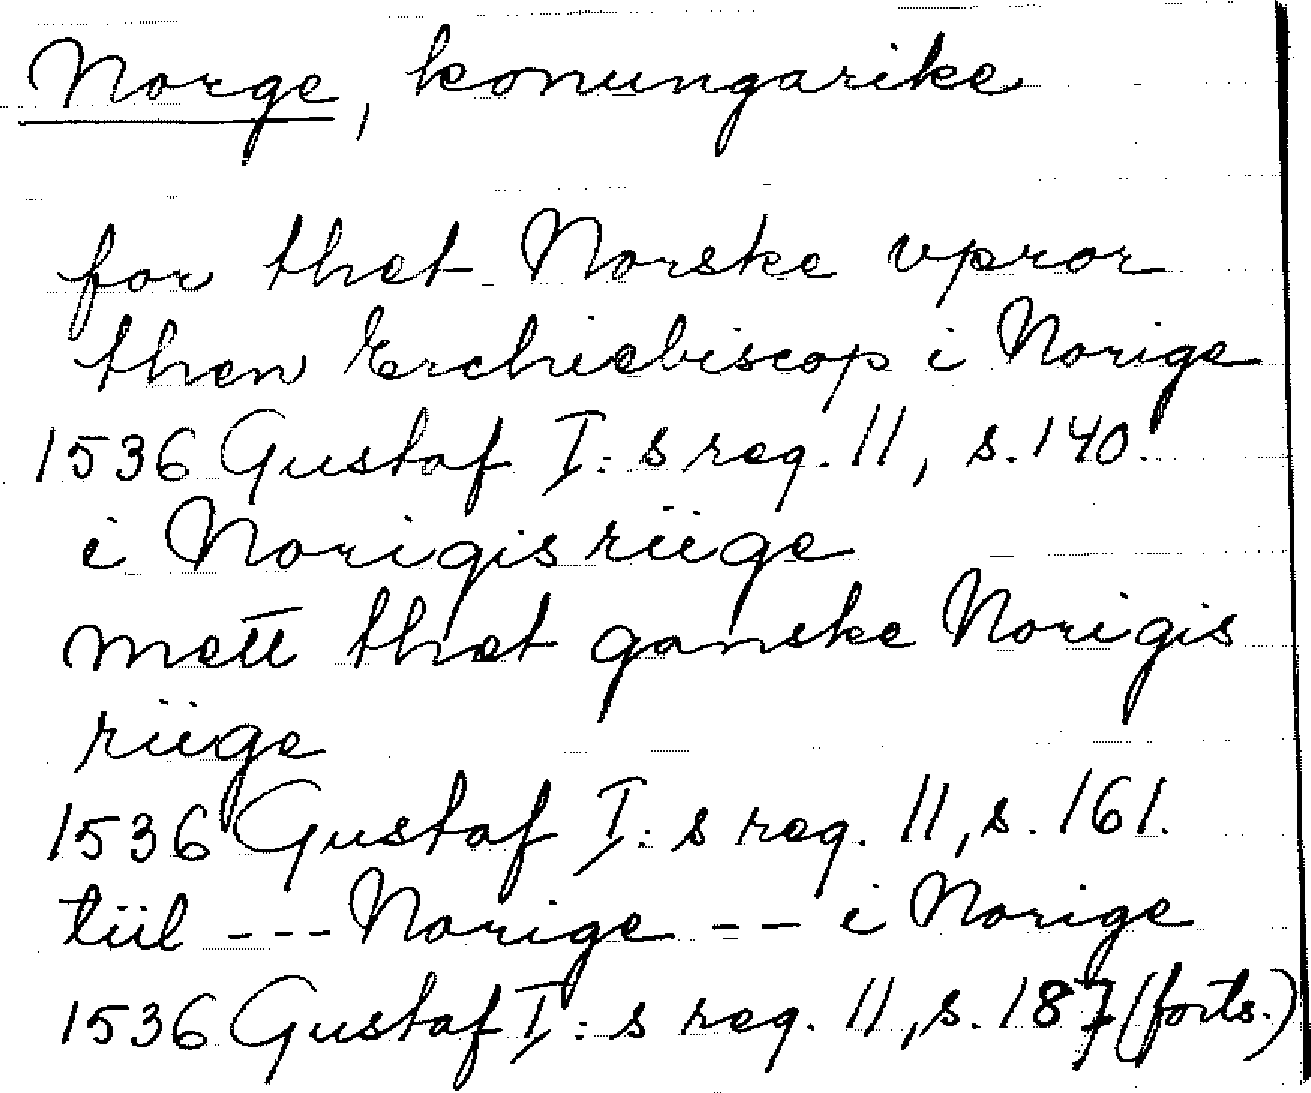 Norge, konungarike
for thet Norske vpror
then Erchiebiscop i Norige
1536 Gustaf I:s reg. 11, s. 140.
i Norigis riige
mett thet ganske Norigis
riige
1536 Gustaf I:s reg. 11, s. 161.
tiil --- Norige -- i Norige
1536 Gustaf I:s reg. 11, s. 187 (forts.)